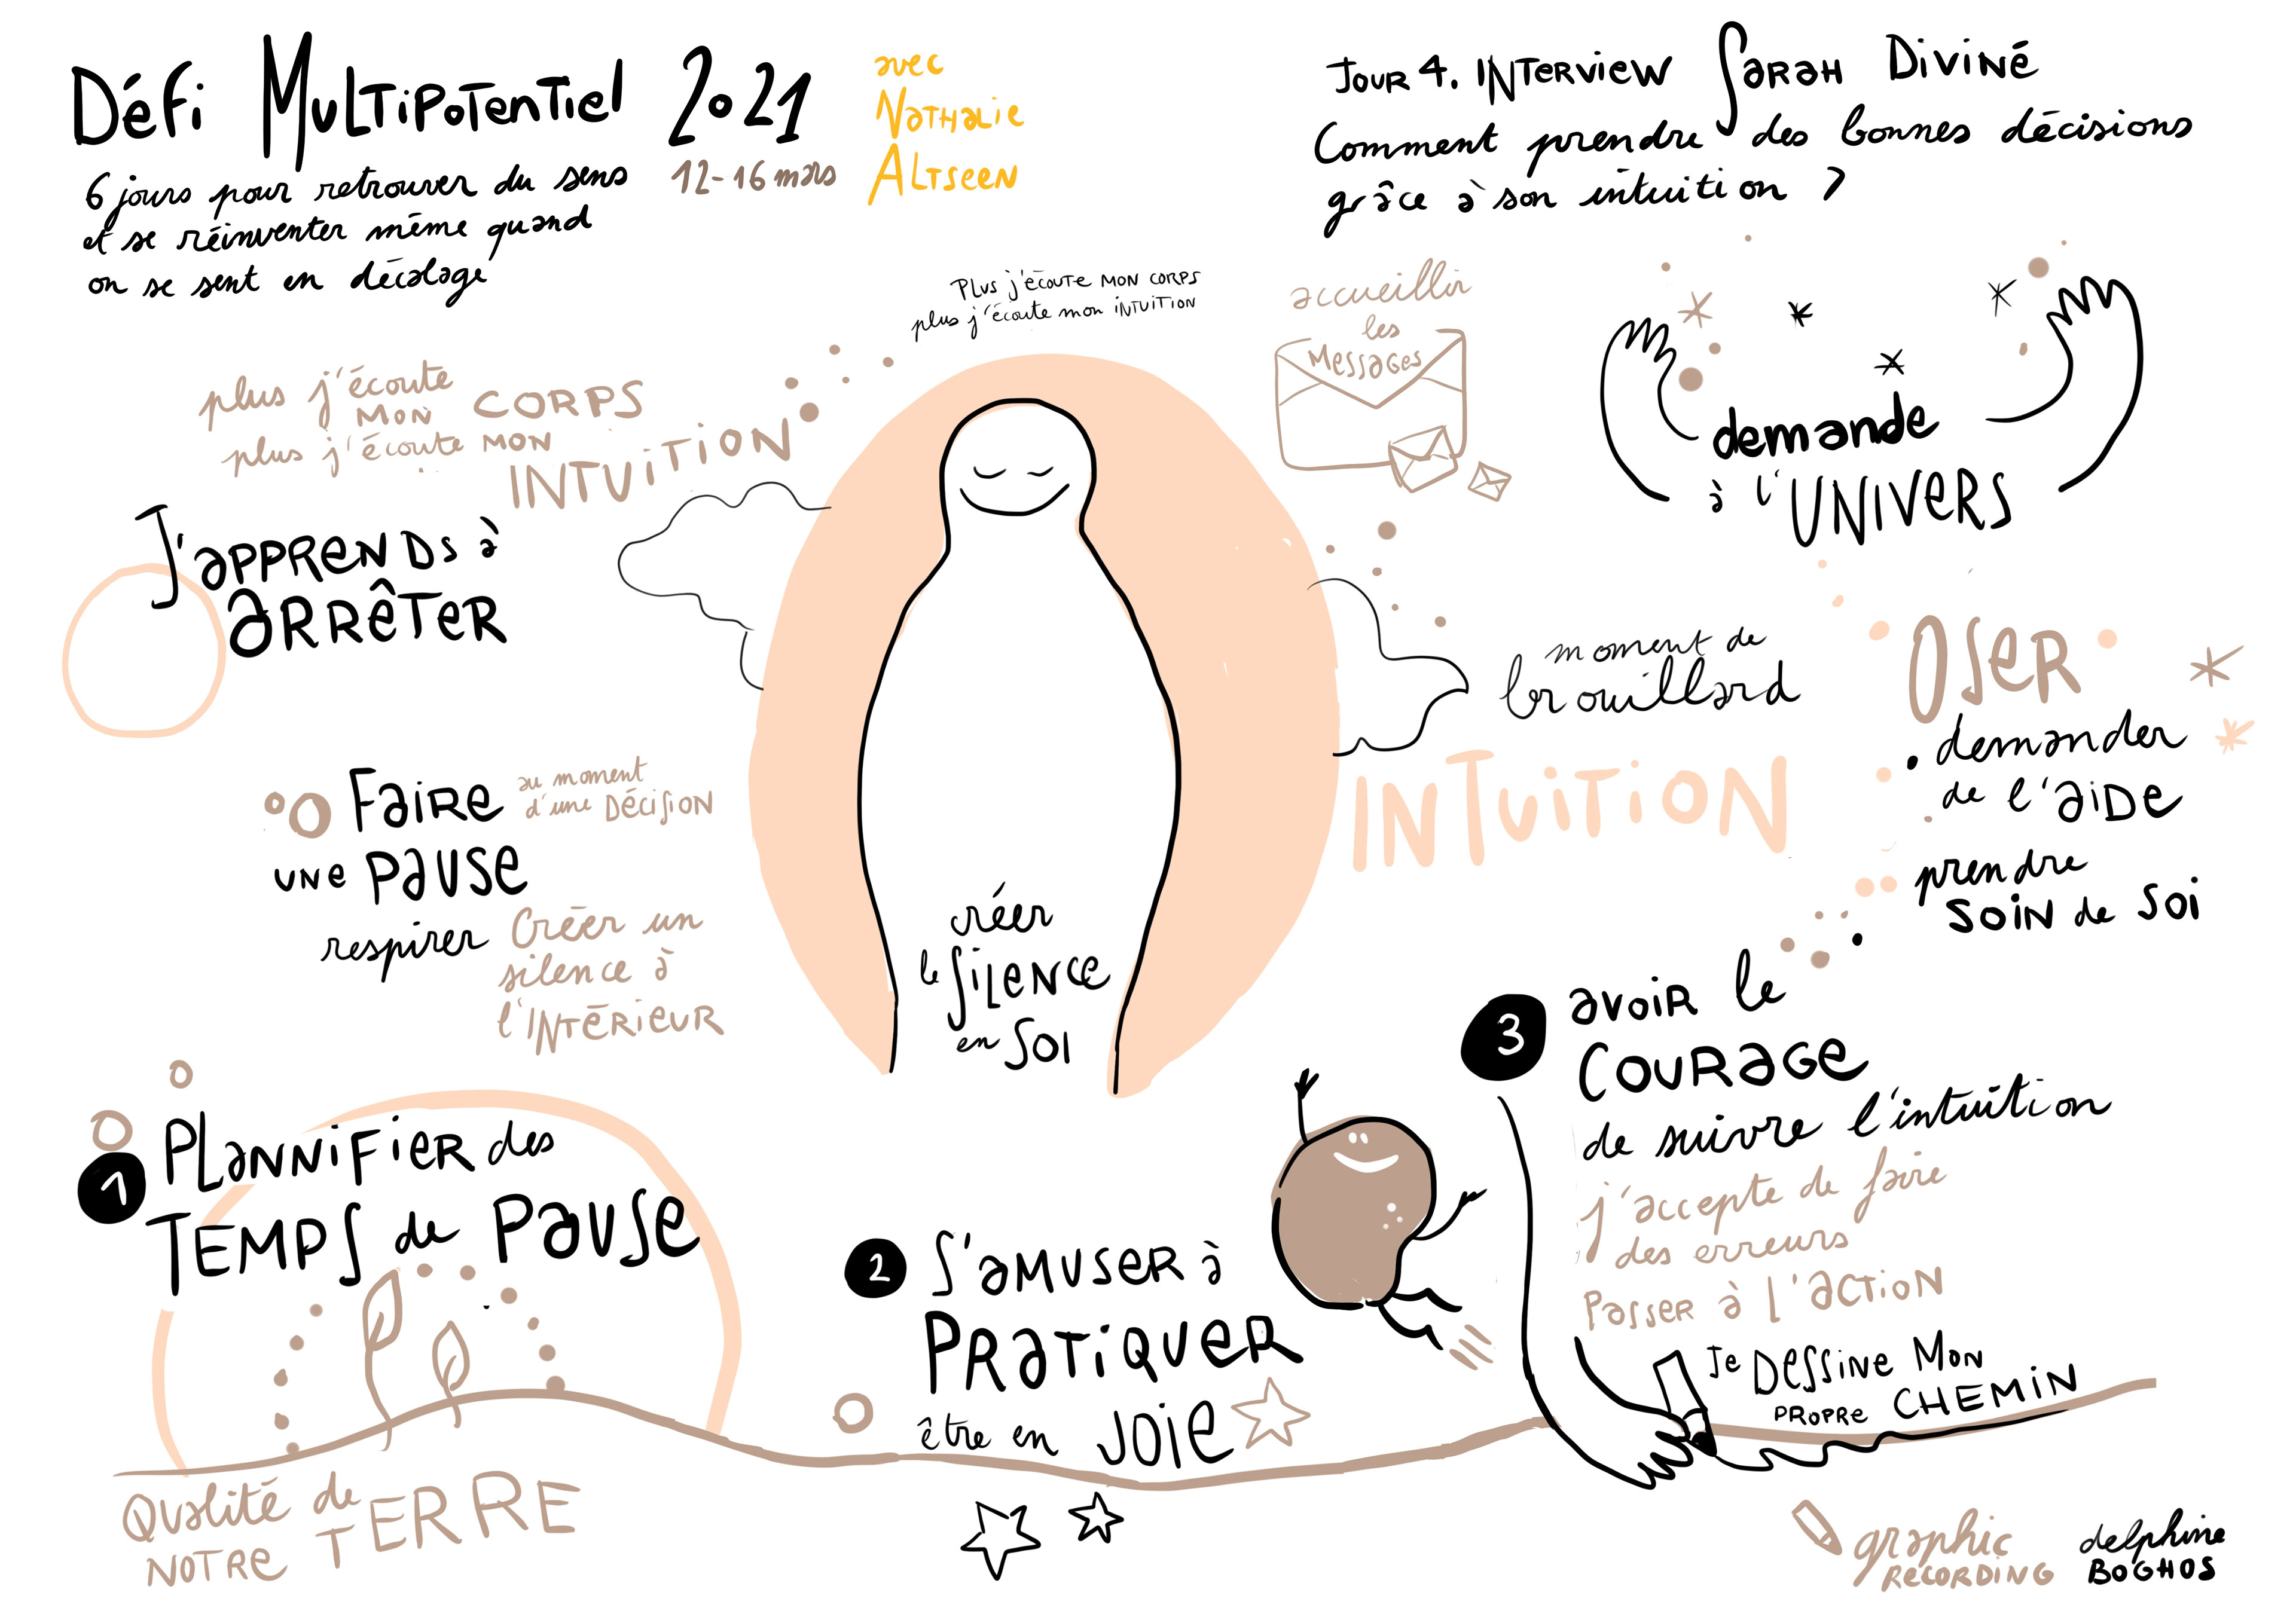 Défi Multipotentiel 2021
12-16 mars
avec
Nathalie
Altseen
6 jours pour retrouver du sens
et se réinventer même quand
on se sent en décalage
Jour 4. Interview Sarah Diviné
Comment prendre des bonnes décisions
grâce à son intuition ?
Plus j'écoute mon corps
plus j'écoute mon intuition
plus j'écoute
mon CORPS
plus j'écoute mon
INTUITION
accueillir
les
Messages
demande
à l'UNIVERS
J'apprends à
arrêter
moment de
brouillard
INTUITION
Oser
• demander
de l'aide
prendre
soin de soi
Faire
au moment
d'une décision
une pause
respirer
Créer un
silence à
l'Intérieur
créer
le silence
en soi
1 Plannifier des
Temps de pause
Qualité de
notre TERRE
2 S'amuser à
Pratiquer
être en joie
3 avoir le
courage
de suivre l'intuition
j'accepte de faire
des erreurs
Passer à l'action
Je dessine mon
propre CHEMIN
graphic
recording
delphine
Boghos